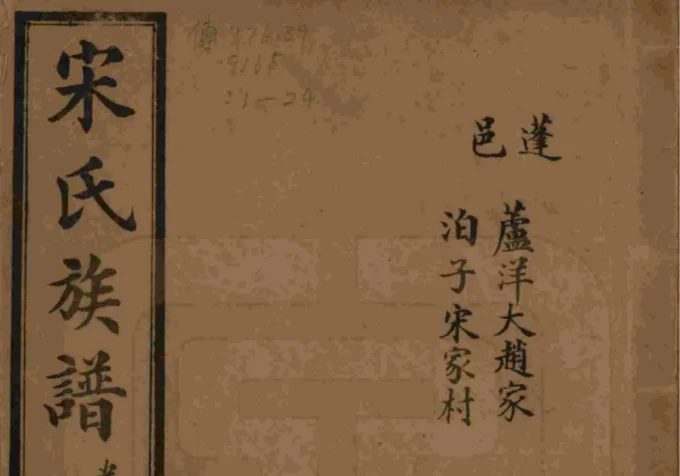 宋氏族譜
蓬邑
蘆洋大趙家
泊子宋家村
傳 976.39
9165
21-24